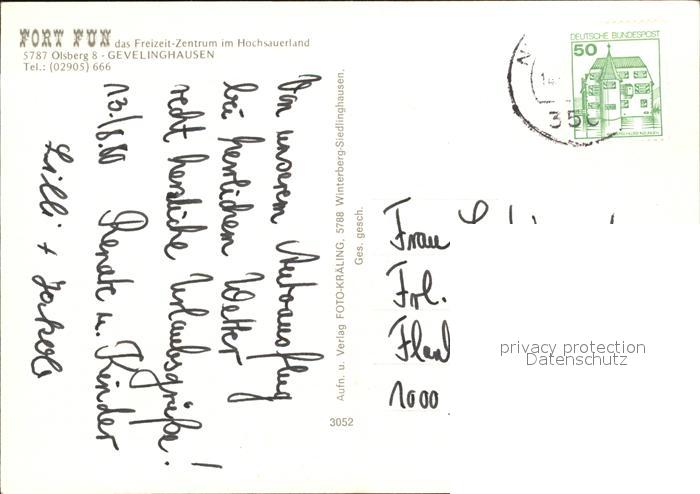 FORT FUN das Freizeit-Zentrum im Hochsauerland
5787 Olsberg 8 - GEVELINGHAUSEN
Tel.: (02905) 666
Von unserem Autoausflug
bei herrlichem Wetter
recht herzliche Urlaubsgrüße!
13./8.80 Renate u. Kinder
Lilli + Jakob
Aufn. u. Verlag FOTO-KRÄLING, 5788 Winterberg-Siedlinghausen.
Ges. gesch.
3052
DEUTSCHE BUNDESPOST
50
350
Frau
Frl.
1000
privacy protection
Datenschutz